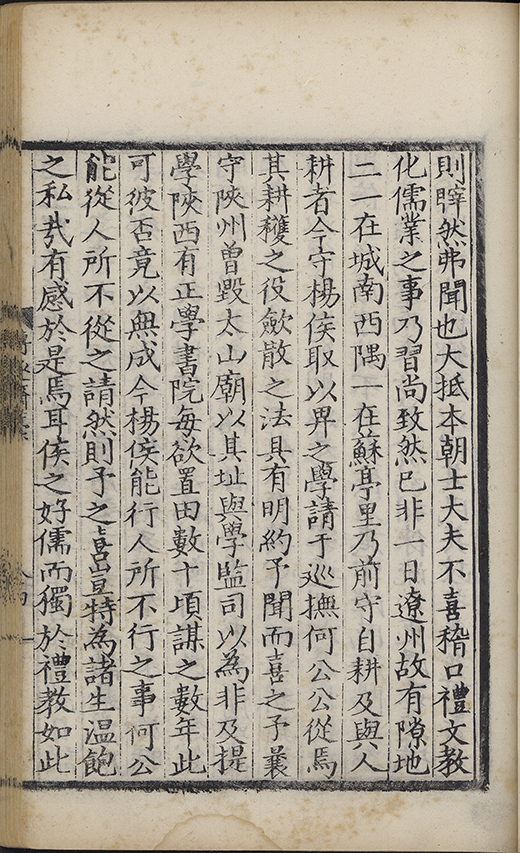 則聠然弗聞也大抵本朝士大夫不喜稽口禮文教
化儒業之事乃習尚致然已非一日遼州故有隙地
二一在城南西隅一在蘇亭里乃前守自耕及與人
耕者今守楊侯取以畀之學請于巡撫何公公從焉
其耕穫之役歛散之法具有明約予聞而喜之予㐮
守陜州曾毀太山廟以其址與學監司以為非及提
學陜西有正學書院每欲置田數十頃謀之數年此
可彼否竟以無成今楊侯能行人所不行之事何公
能從人所不從之請然則予之喜豈特為諸生温飽
之私㢤有感於是焉耳侯之好儒而獨於禮教如此